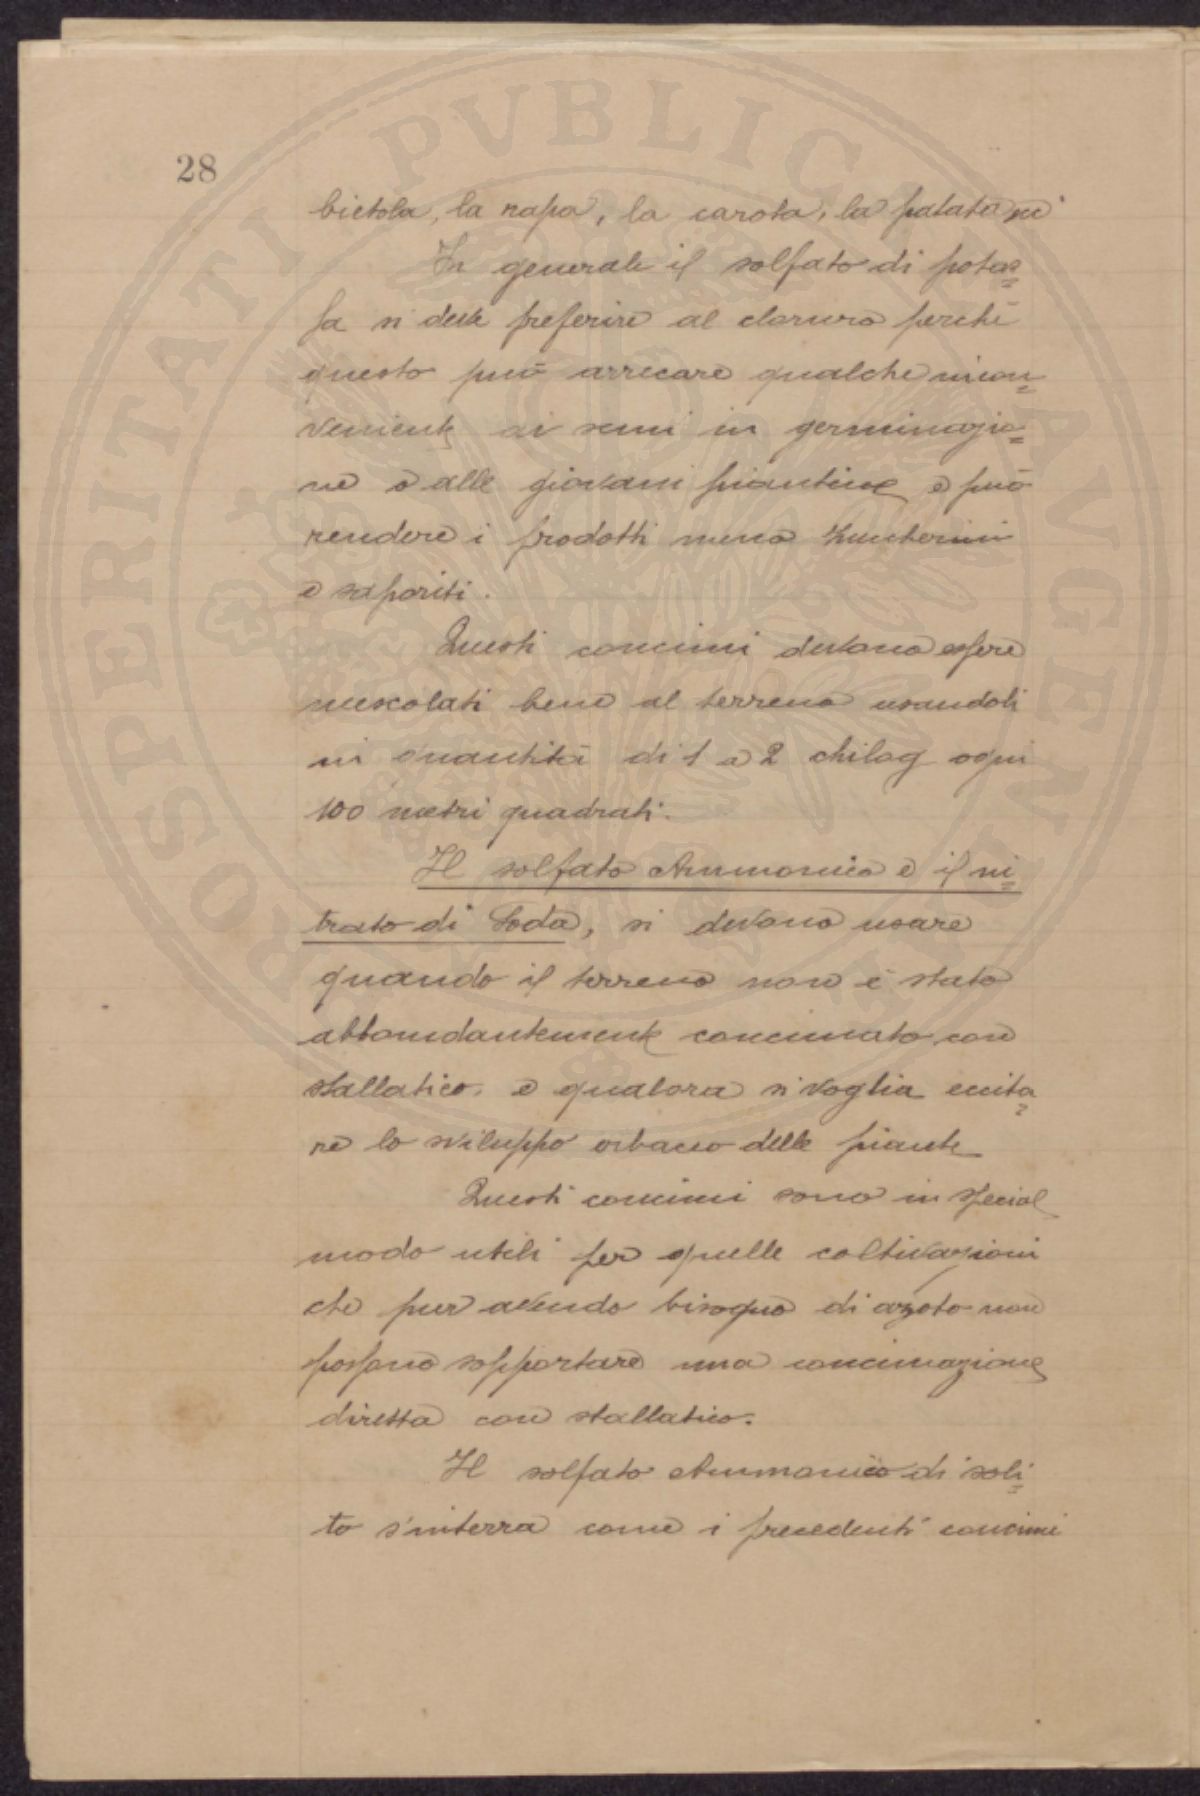 PROSPERITATI PVBLICAE AVGENDAE
28
bietola, la rapa, la carota, la patata
In generale il solfato di potas=
sa si deve preferire al cloruro perchè
questo può arrecare qualche incon=
veniente ai semi in germinazio=
ne e alle giovani piantine e può
rendere i prodotti meno zuccherini
e saporiti.
Questi concimi devono essere
mescolati bene al terreno usandoli
in quantità di 1 a 2 chilog ogni
100 metri quadrati.
Il solfato Ammonico e il ni=
trato di Soda, si devono usare
quando il terreno non è stato
abbondantemente concimato con
stallatico. e qualora si voglia eccita=
re lo sviluppo erbaceo delle piante
Questi concimi sono in special
modo utili per quelle coltivazioni
che pur avendo bisogno di azoto non
possono sopportare una concimazione
diretta con stallatico.
Il solfato Ammonico di soli=
to s'interra come i precedenti concimi